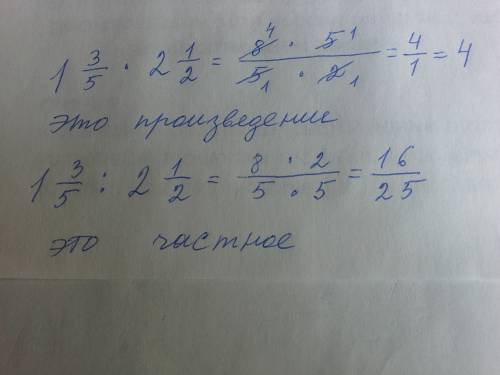 1 3/5 · 2 1/2 = 8 4 · 5 1 / 5 1 · 2 1 = 4/1 = 4
это произведение
1 3/5 : 2 1/2 = 8 · 2 / 5 · 5 = 16/25
это частное